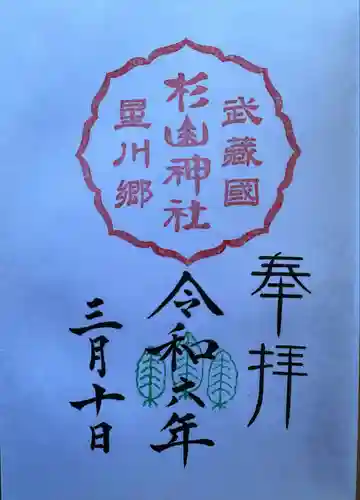 奉拝
武藏國
杉山神社
星川郷
令和六年
三月十日